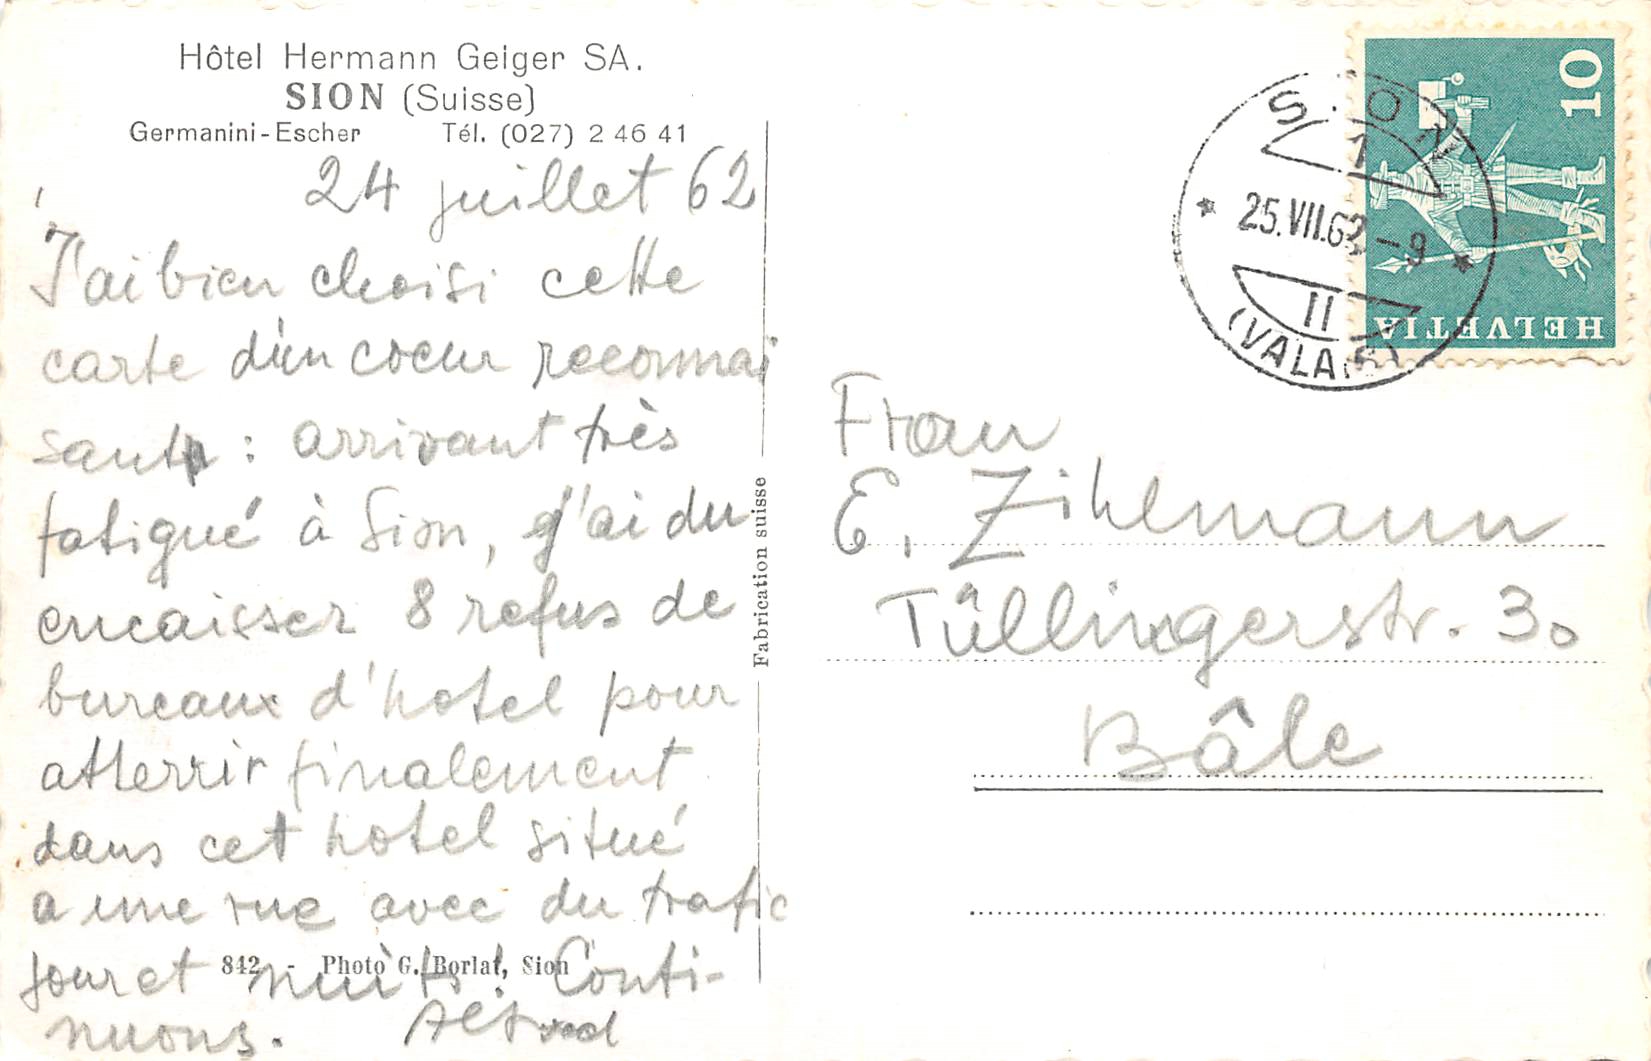 Hôtel Hermann Geiger SA.
SION (Suisse)
Germanini-Escher Tél. (027) 2 46 41
24 juillet 62
J'ai bien choisi cette
carte d'un coeur reconnai
sant : arrivant très
fatigué à Sion, j'ai du
encaisser 8 refus de
bureaux d'hotel pour
atterrir finalement
dans cet hotel situé
a une rue avec du trafic
jour et nuits! Conti-
nuons. Alfred
842 - Photo G. Borlat, Sion
Fabrication suisse
HELVETIA
10
SION
1
25.VII.62-9
II
(VALAIS)
Frau
E. Zihlmann
Tüllingerstr. 30
Bâle